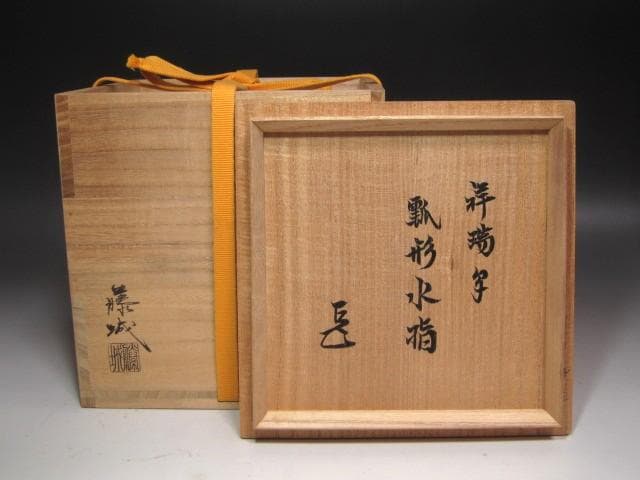 祥瑞手
瓢形水指
藤城